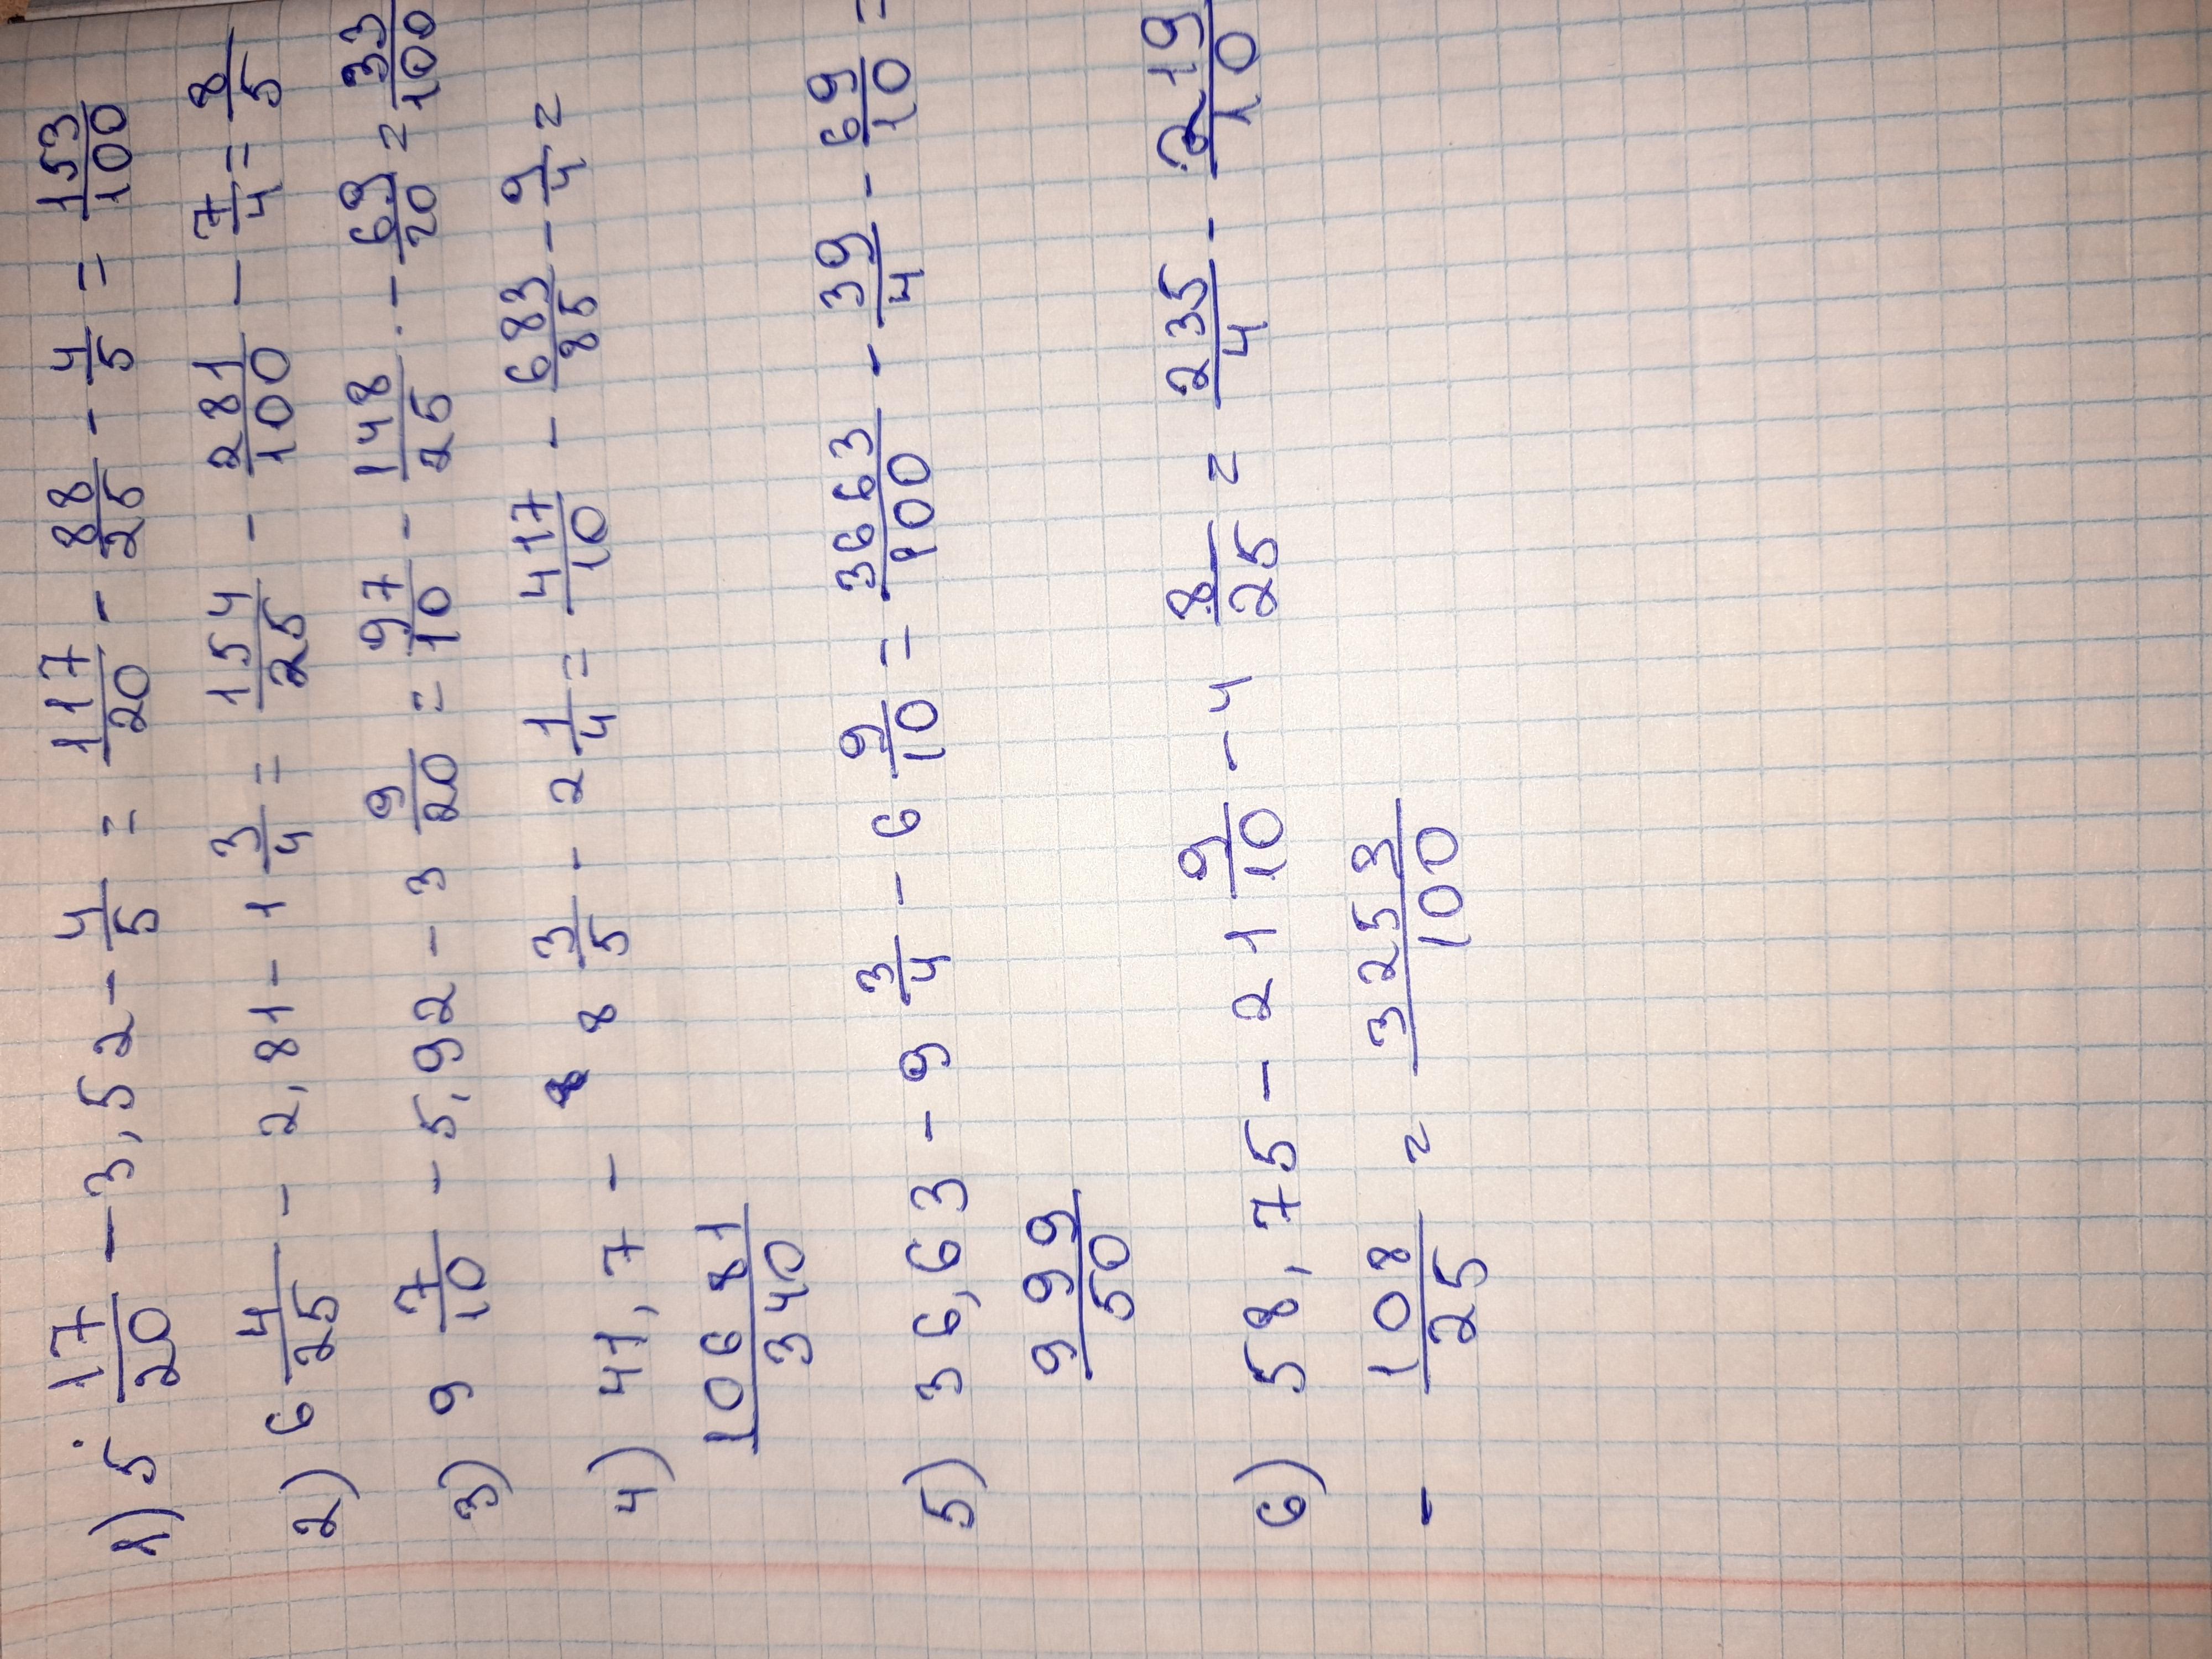 1) 5 17/20 - 3,52 - 4/5 = 117/20 - 88/25 - 4/5 = 153/100
2) 6 4/25 - 2,81 - 1 3/4 = 154/25 - 281/100 - 7/4 = 8/5
3) 9 7/10 - 5,92 - 3 9/20 = 97/10 - 148/25 - 69/20 = 33/100
4) 41,7 - 8 3/5 - 2 1/4 = 417/10 - 683/85 - 9/4 =
10681/340
5) 36,63 - 9 3/4 - 6 9/10 = 3663/100 - 39/4 - 69/10 =
999/50
6) 58,75 - 21 9/10 - 4 8/25 = 235/4 - 219/10
- 108/25 = 3253/100